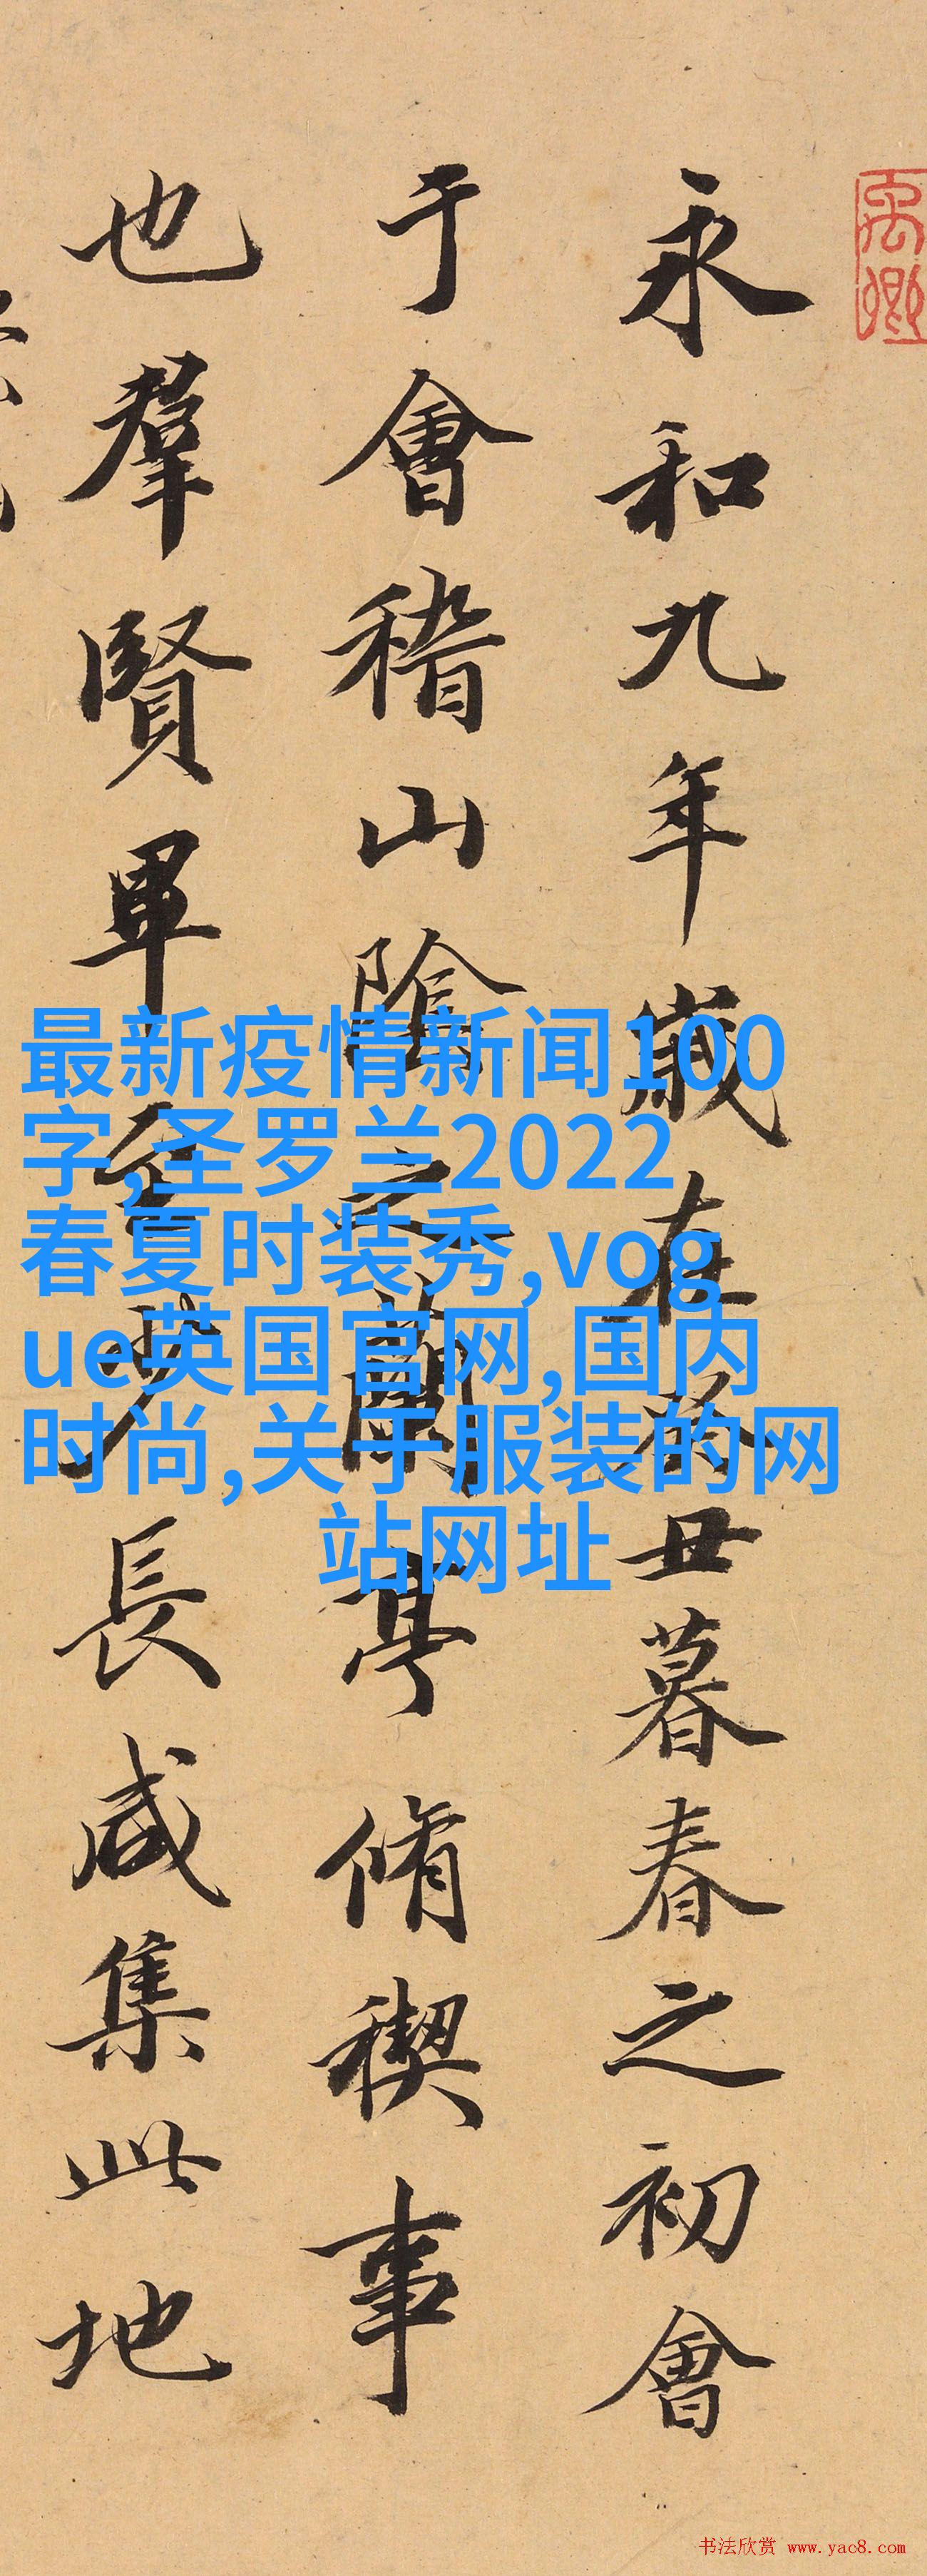 永和九年歲在癸丑暮春之初會
于會稽山陰之蘭亭脩稧事
也羣賢畢至少長咸集此地
最新疫情新闻100
字,圣罗兰2022
春夏时装秀,vog
ue英国官网,国内
时尚,关于服装的网
站网址
书法欣赏 www.yac8.com